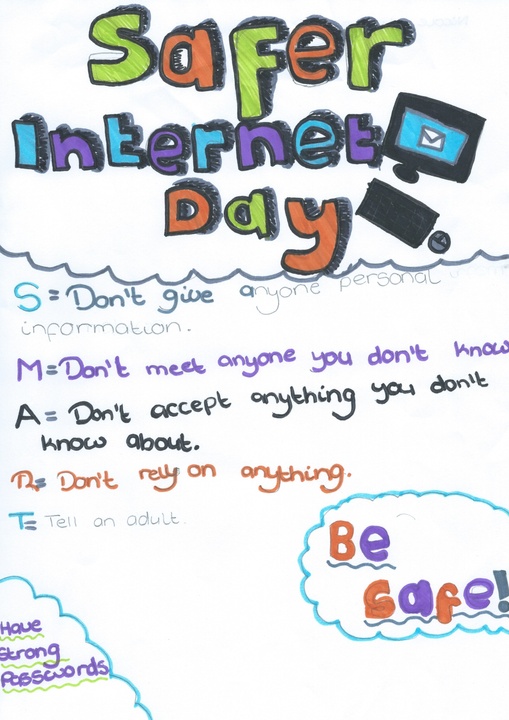 Safer
Internet
Day
S = Don't give anyone personal
information.
M = Don't meet anyone you don't know
A = Don't accept anything you don't
know about.
R = Don't rely on anything.
T = Tell an adult.
Be
Safe!
Have
Strong
Passwords